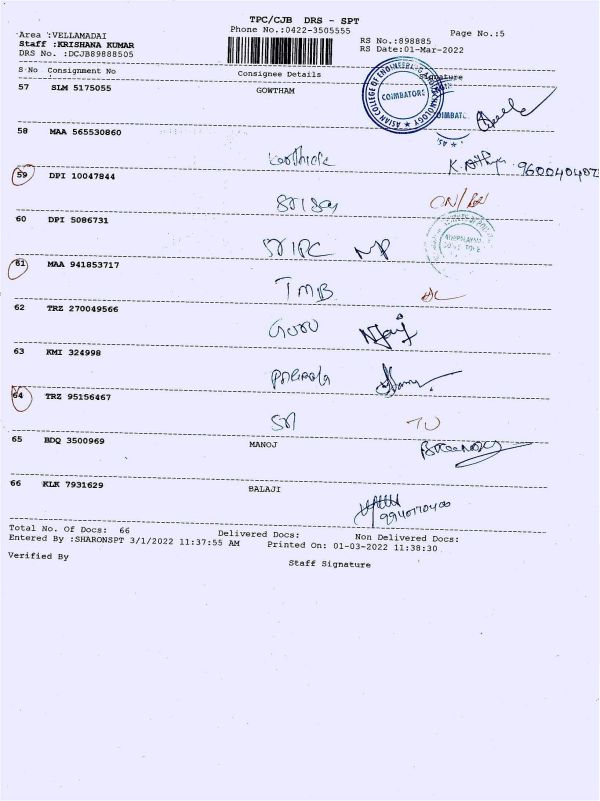 TPC/CJB DRS - SPT
Area :VELLAMADAI Phone No.:0422-3505555 Page No.:5
Staff :KRISHANA KUMAR RS No.:898885
DRS No. :DCJB89888505 RS Date:01-Mar-2022
S.No Consignment No Consignee Details Signature
57 SLM 5175055 GOWTHAM
ASIAN COLLEGE OF ENGINEERING & TECHNOLOGY
COIMBATORE
58 MAA 565530860
Karthick
59 DPI 10047844
60 DPI 5086731
61 MAA 941853717
TMB
62 TRZ 270049566
Guru
63 KMI 324998
64 TRZ 95156467
65 BDQ 3500969 MANOJ
66 KLK 7931629 BALAJI
Total No. Of Docs: 66 Delivered Docs: Non Delivered Docs:
Entered By :SHARONSPT 3/1/2022 11:37:55 AM Printed On: 01-03-2022 11:38:30
Verified By Staff Signature